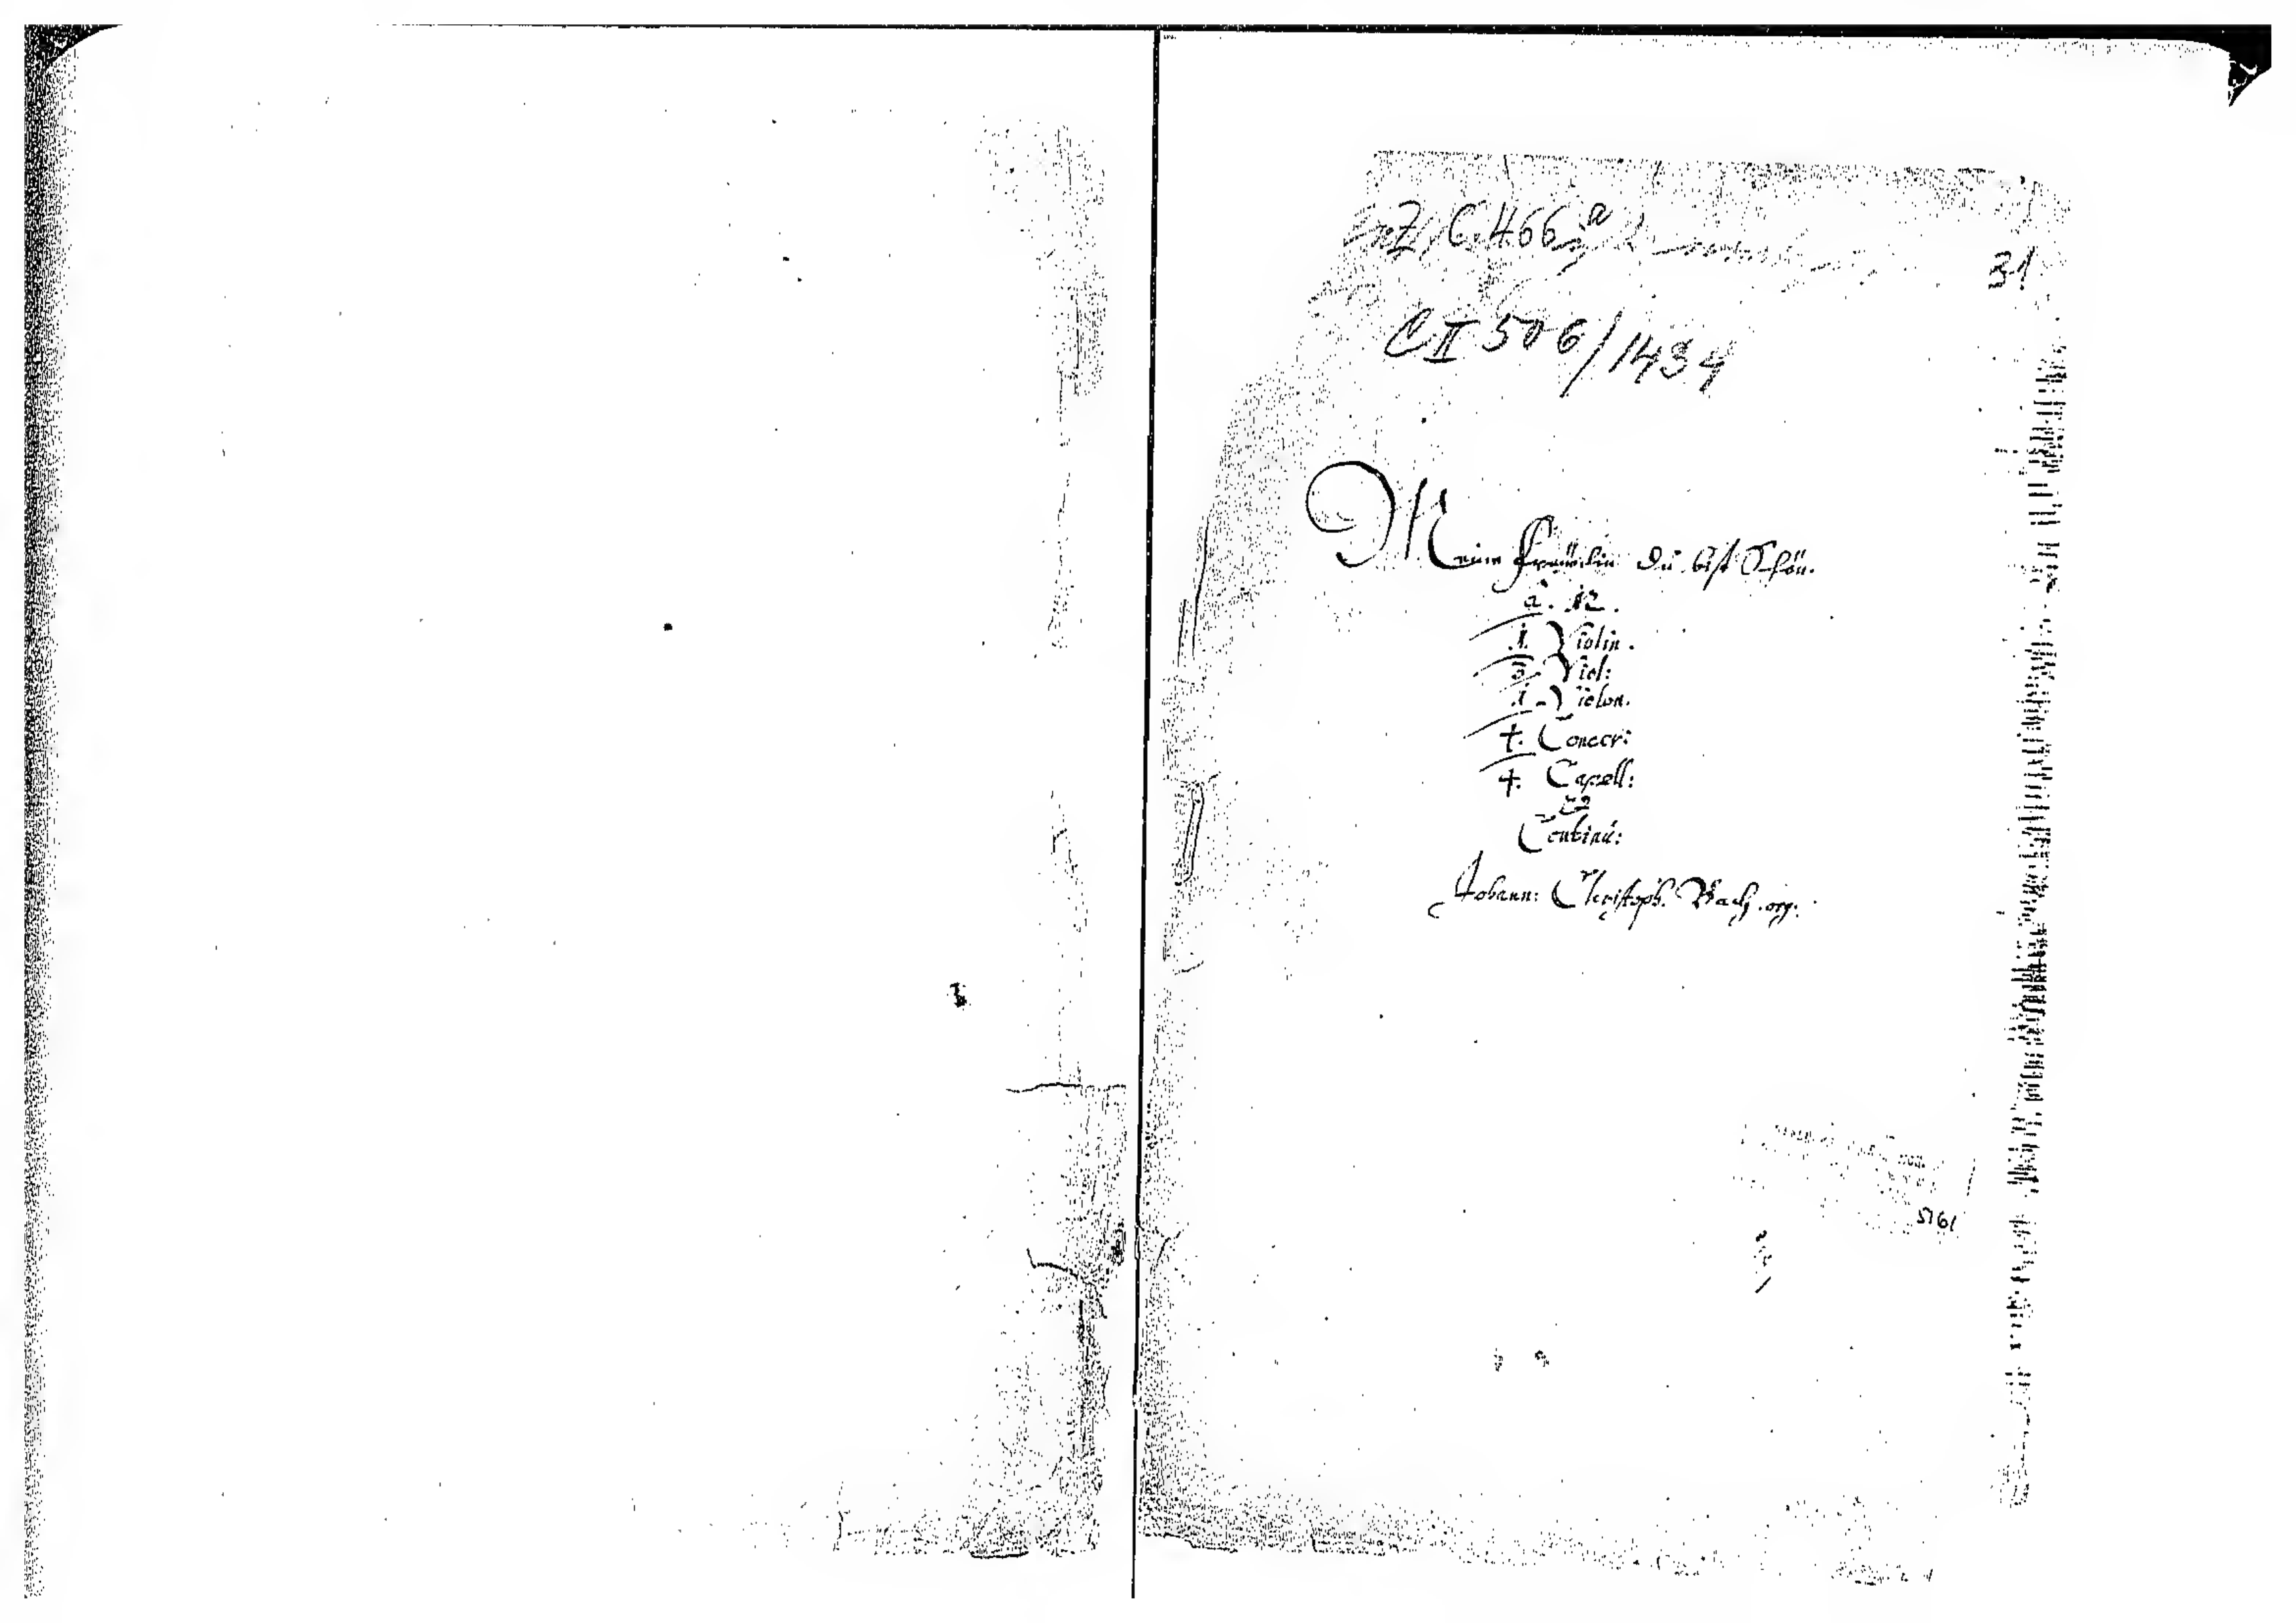 C. 466 a
31
C II 506/1434
Meine Freundin du bist Schön.
à. 12.
1. Violin.
3. Viol:
1. Violon.
4. Concer:
4. Capell:
Et
Continú:
Johann: Christoph. Bach. org.
5161